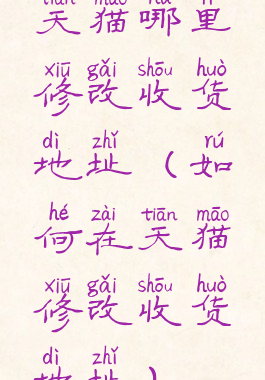 tiān māo nǎ lǐ
天猫哪里
xiū gǎi shōu huò
修改收货
dì zhǐ rú
地址（如
hé zài tiān māo
何在天猫
xiū gǎi shōu huò
修改收货
dì zhǐ
地址）